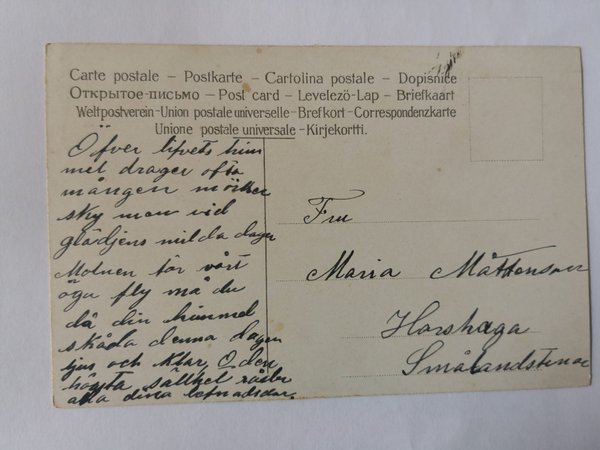 Carte postale – Postkarte – Cartolina postale – Dopisnice
Открытое-письмо – Post card – Levelezö-Lap – Briefkaart
Weltpostverein-Union postale universelle-Brefkort-Correspondenzkarte
Unione postale universale -Kirjekortti.
Öfver lifvets him
mel drager ofta
mången mörker
sky men vid
glädjens milda dager
Molnen för vårt
öga fly må du
då din himmel
skåda denna dagen
ljus och klar O den
högsta sällhet råder
alla dina lefnadsdar.
Fru
Maria Måttenson
Horshaga
Smålandstenar